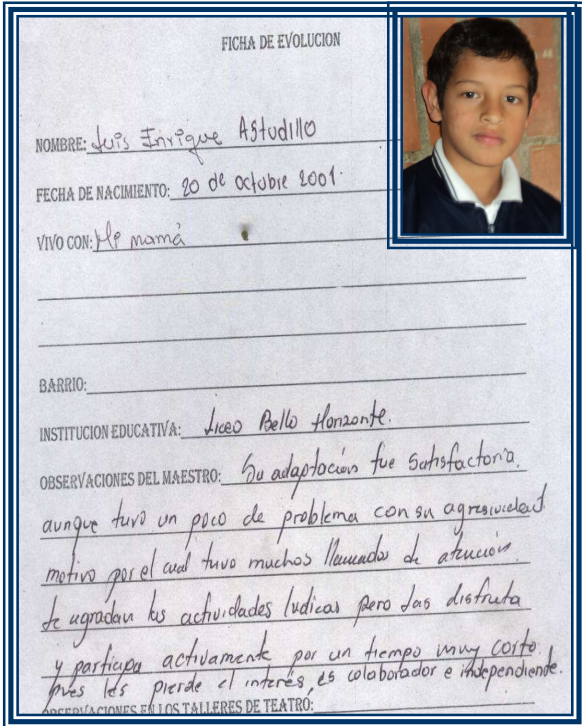 FICHA DE EVOLUCION
NOMBRE: Luis Enrique Astudillo
FECHA DE NACIMIENTO: 20 de octubre 2001.
VIVO CON: Mi mamá
BARRIO:
INSTITUCION EDUCATIVA: Liceo Bello Horizonte.
OBSERVACIONES DEL MAESTRO: Su adaptación fue satisfactoria,
aunque tuvo un poco de problema con su agresividad
motivo por el cual tuvo muchos llamados de atención.
le agradan las actividades lúdicas pero las disfruta
y participa activamente por un tiempo muy corto.
pues les pierde el interés, es colaborador e independiente.
OBSERVACIONES EN LOS TALLERES DE TEATRO: